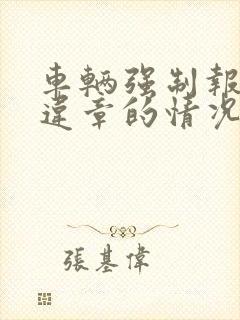 車輛强制報
違章的情况
張基偉